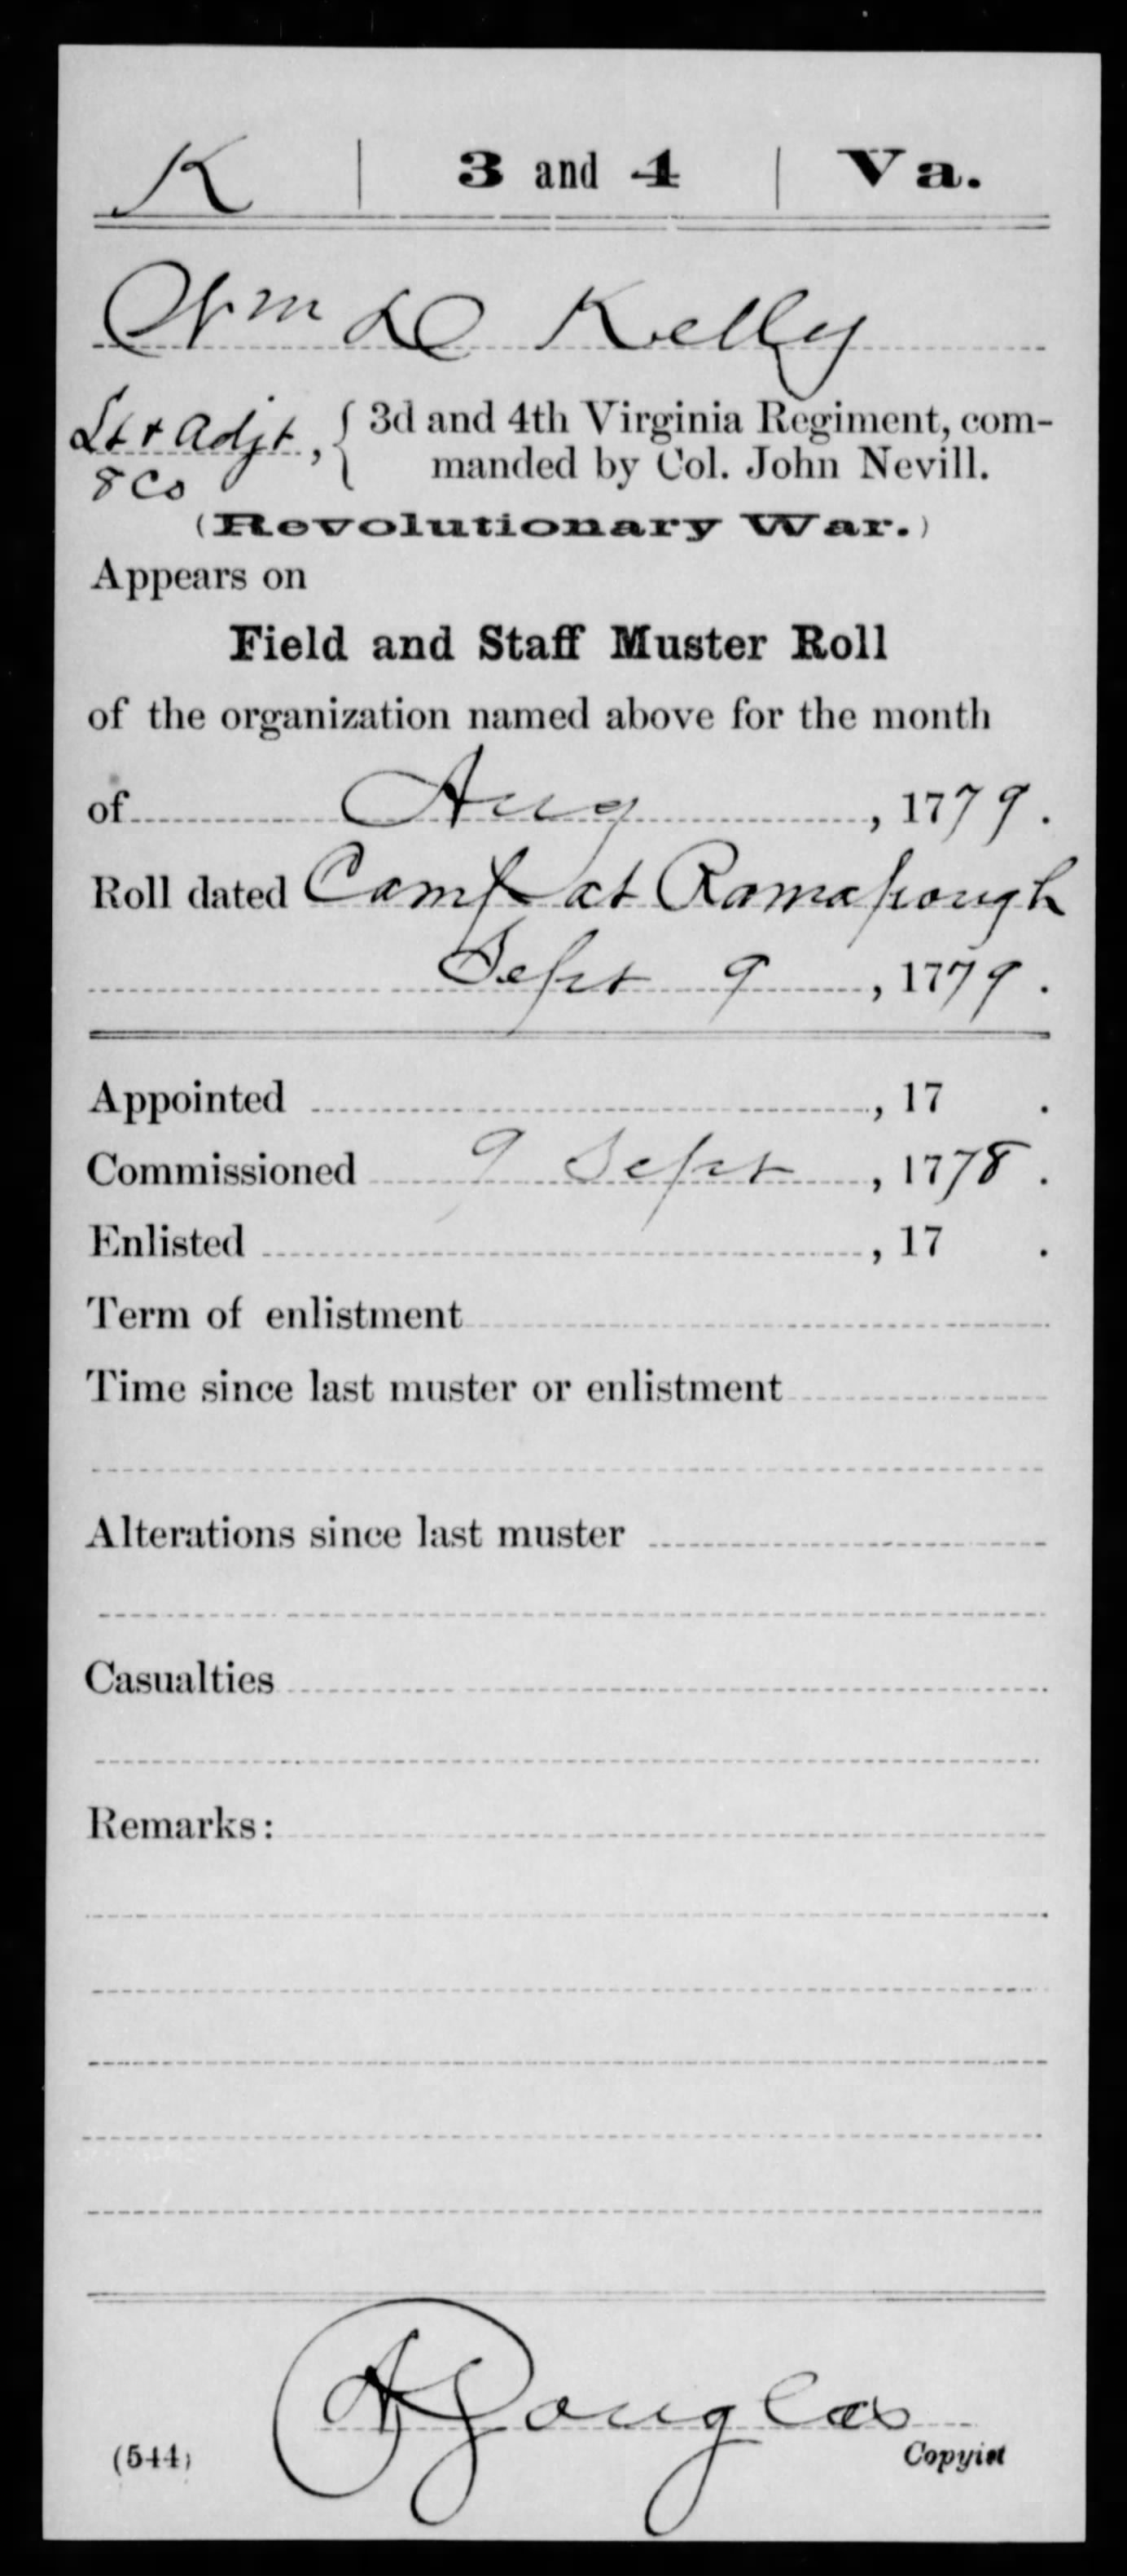 K | 3 and 4 | Va.
Wm D Kelly
Lt + Adjt, { 3d and 4th Virginia Regiment, com-
8 Co manded by Col. John Nevill.
(Revolutionary War.)
Appears on
Field and Staff Muster Roll
of the organization named above for the month
of Aug, 1779.
Roll dated Camp at Ramapough
Sept 9, 1779.
Appointed , 17 .
Commissioned 9 Sept, 1778.
Enlisted , 17 .
Term of enlistment
Time since last muster or enlistment
Alterations since last muster
Casualties
Remarks:
A Douglas
(544) Copyist